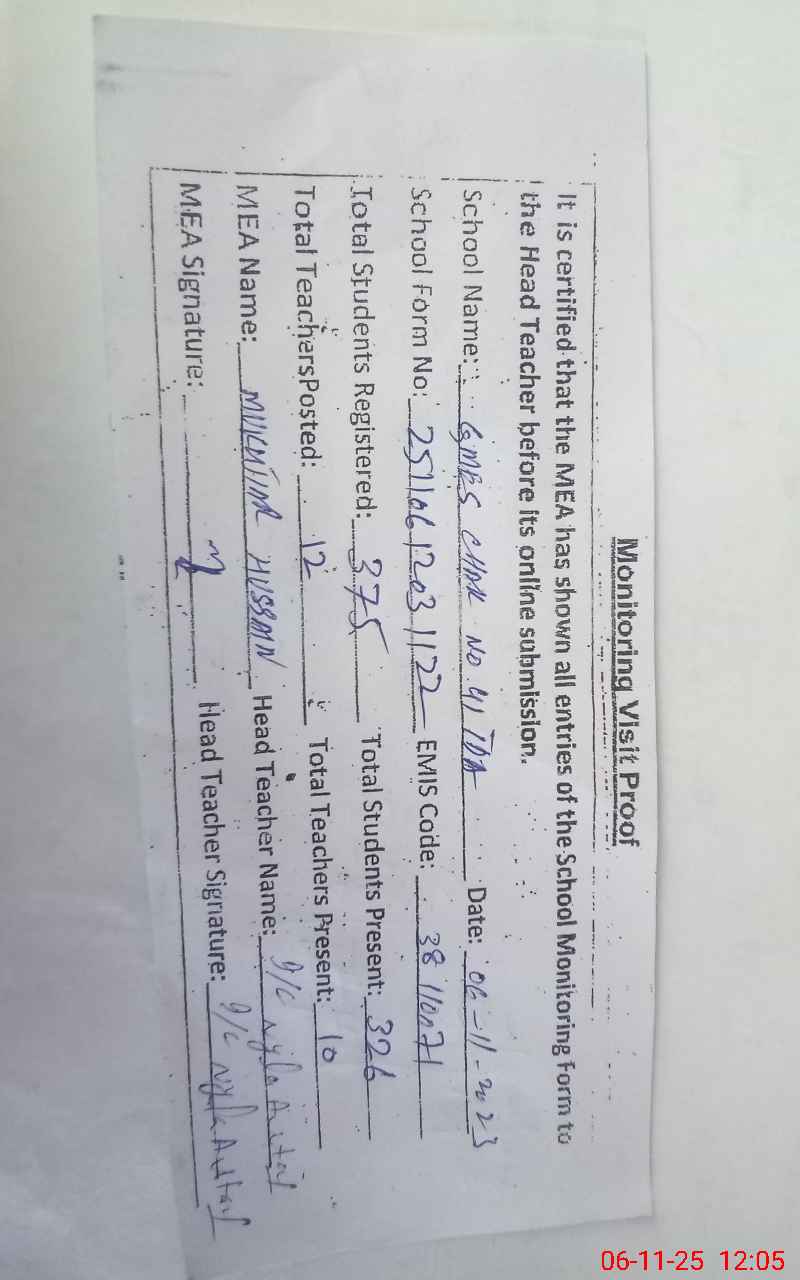 Monitoring Visit Proof
It is certified that the MEA has shown all entries of the School Monitoring Form to
the Head Teacher before its online submission.
School Name: GMES CHAK NO 41 TDA Date: 06-11-2023
School Form No: 25110612031122 EMIS Code: 38110071
Total Students Registered: 375 Total Students Present: 326
Total Teachers Posted: 12 Total Teachers Present: 10
MEA Name: MUKHTIAR HUSSAIN Head Teacher Name: I/C Nyla Altaf
MEA Signature: Head Teacher Signature: I/C Nyla Altaf
06-11-25 12:05